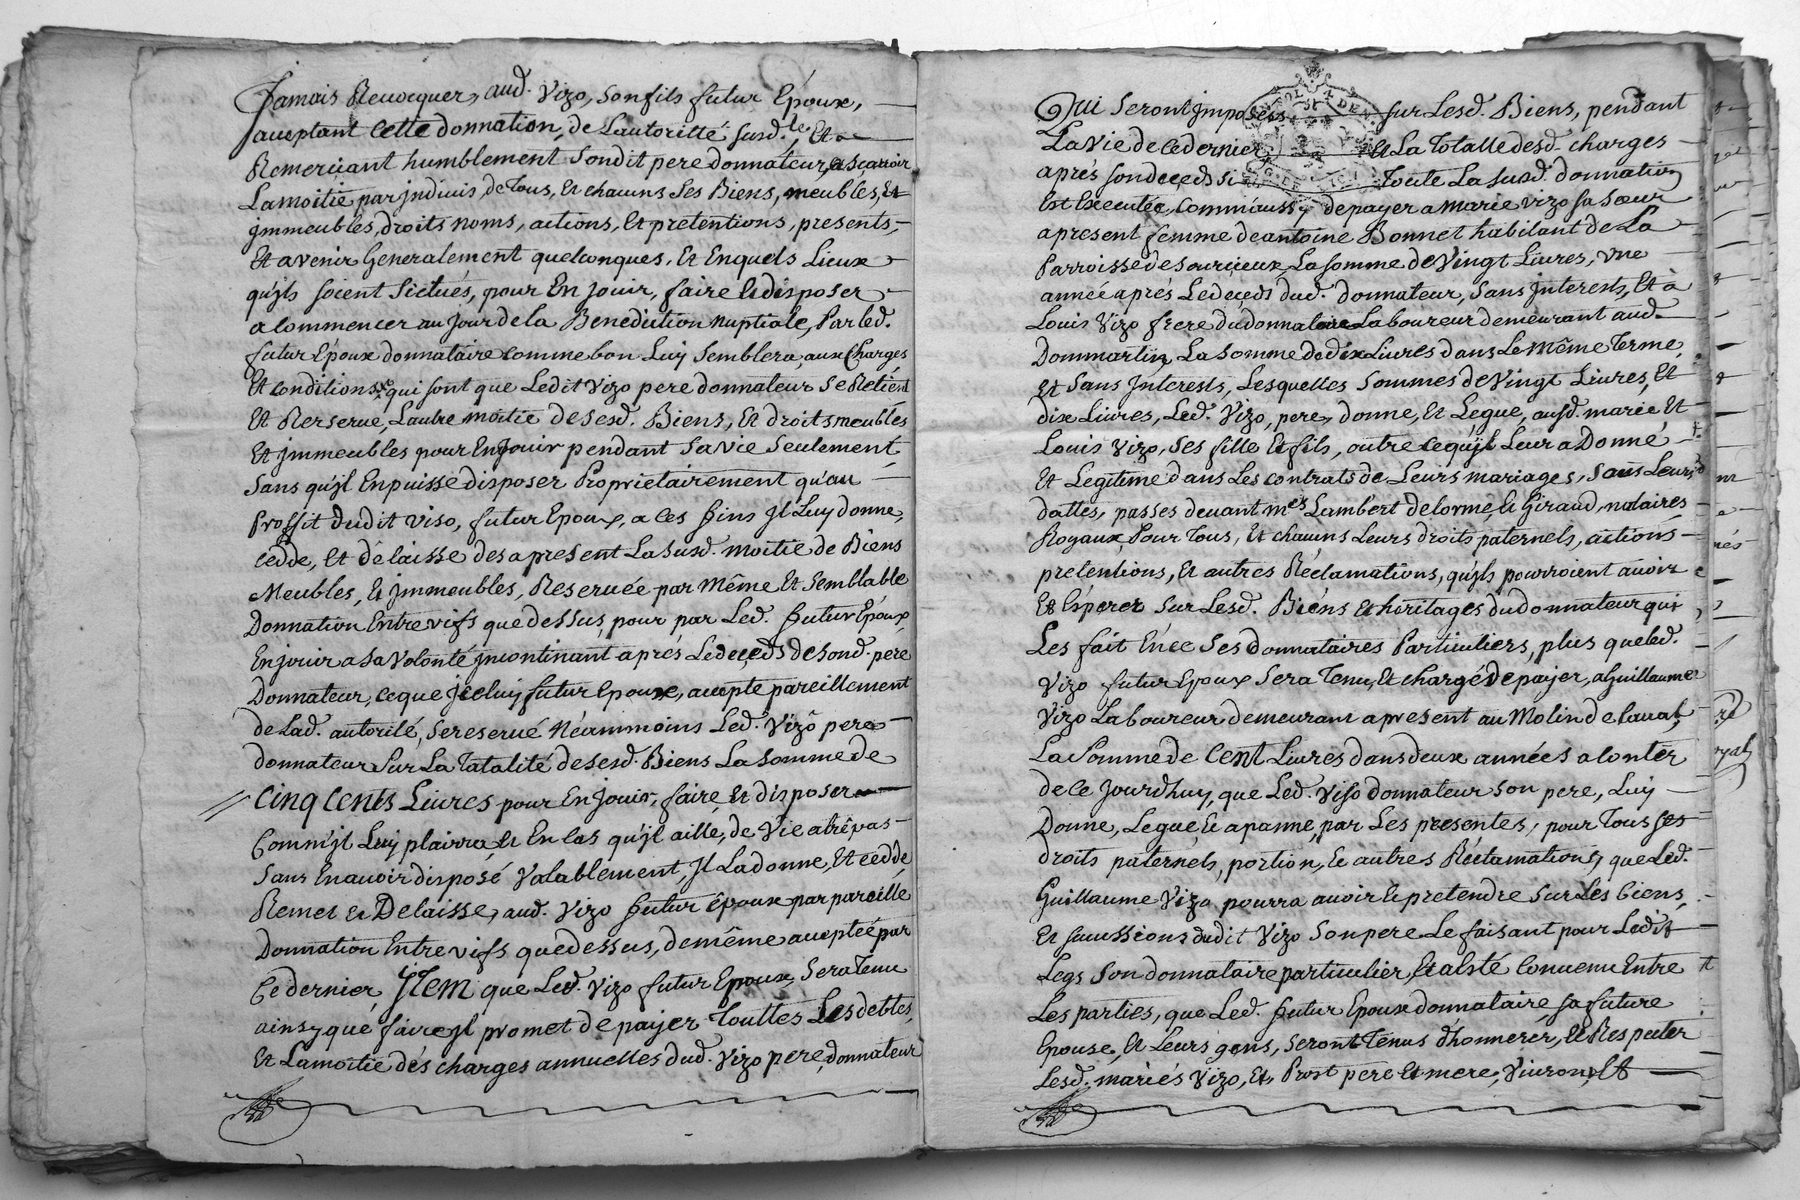 Jamais Reuocquer, aud. Vizo, son fils futur Epoux,
aceptant cette donnation, de Lautoritté susd.te Et
Remerciant humblement Sondit pere donnateur, a sçavoir
Lamoitie par Indiuis, de Tous, Et chacuns Ses Biens, meubles, Et
jmmeubles, droits noms, actions, Et pretentions, presents,
Et avenir Generalement quelconques, Et Enquels Lieux
qu'jls soient Sictués, pour En Jouir, faire Et disposer
a Commencer au Jour de la Benediction nuptiale, Par led.
futur Epoux donnataire comme bon Luy Semblera, aux Charges
Et conditions qui sont que Ledit Vizo pere donnateur Se Retient
Et Rerserue, Lautre moitie de sesd. Biens, Et droits meubles
Et jmmeubles pour En Jouir pendant Sa vie Seulement
Sans qu'jl En puisse disposer Proprietairement qu'au
Proffit dudit viso, futur Epoux, a Ces fins Jl Luy donne,
Cedde, Et delaisse des a present La susd. moitie de Biens
Meubles, Et jmmeubles, Reseruée par Même Et Semblable
Donnation Entre vifs que dessus, pour par Led. futur Epoux
En jouir a Sa Volonté jncontinant aprés Le deceds de Sond. pere
Donnateur, ce que jceluy futur Epoux, accepte pareillement
de Lad. autorité, Se reserué Néammoins Led. Vizo pere
donnateur Sur La Tatalité de Sesd. Biens La Somme de
Cinq Cents Liures pour En Jouir, faire Et disposer
Comm'jl Luy plairra, et En Cas qu'jl aille, de Vie a trêpas
Sans En auoir disposé Valablement, Jl La donne, Et Cedde,
Remet Et Delaisse, aud. Vizo futur êpoux par pareille
Donnation Entre vifs que dessus, de même acceptée par
Ce dernier Jtem que Led. Vizo futur Epoux, Sera Tenu
ainsy que faire jl promet de payer Touttes Les debtes,
Et La moitie dés charges annuelles dud. Vizo pere, donnateur
Qui Seront jmposées sur Lesd. Biens, pendant
La Vie de Ce dernier Et La Totalle desd. charges
aprés son deceds si Toute La Susd. donnation
Est Executée, Comm'aussy de payer a marie vizo sa Sœur
a present femme de antoine Bonnet habitant de La
Parroisse de Sourcieux La somme de Vingt Liures, Vne
année aprés Le deceds dud. donnateur, Sans jnterests, Et à
Louis Vizo frere du donnataire Laboureur demeurant aud.
Dommartin, La Somme de dix Liures dans Le Même Terme
Et Sans jnterests, Lesquelles Sommes de Vingt Liures, Et
dix Liures, Led. Vizo, pere, donne, Et Legue, ausd. marie Et
Louis Vizo, Ses fille Et fils, outre ce qu'jl Leur a Donné
Et Legitimé dans Les contrats de Leurs mariages, Sous Leurs
dattes, passes deuant mes Lambert delorme, Et Giraud, notaires
Royaux, Pour Tous, Et chacuns Leurs droits paternels, actions
pretentions, Et autres Réclamations, qu'jls pourroient auoir
Et Esperer Sur Lesd. Biéns Et héritages du donnateur qui
Les fait En ce Ses donnataires Particuliers, plus que led.
Vizo futur Epoux Sera Tenu, Et chargé de payer, a Guillaume
Vizo Laboureur demeurant a present au Molin de Laual,
La Somme de Cent Liures dans deux années a Conter
de Ce Jourdhuy, que Led. Viso donnateur Son pere, Luy
Donne, Legue Et apanne, par Les presentes, pour Tous Ses
droits paternels, portion, Et autres Réclamations, que Led.
Guillaume Vizo pourra auoir Et pretendre Sur Les Biens,
Et Successions dudit Vizo Son pere Le faisant pour Ledit
Legs Son donnataire particulier, Et a Esté Conuenu Entre
Les parties, que Led. futur Epoux donnataire, sa future
Epouse, Et Leurs gens, Seront Tenus dhonnerer, Et Respecter
Lesd. mariés Vizo, Et Prost pere Et mere, Viuront, Et